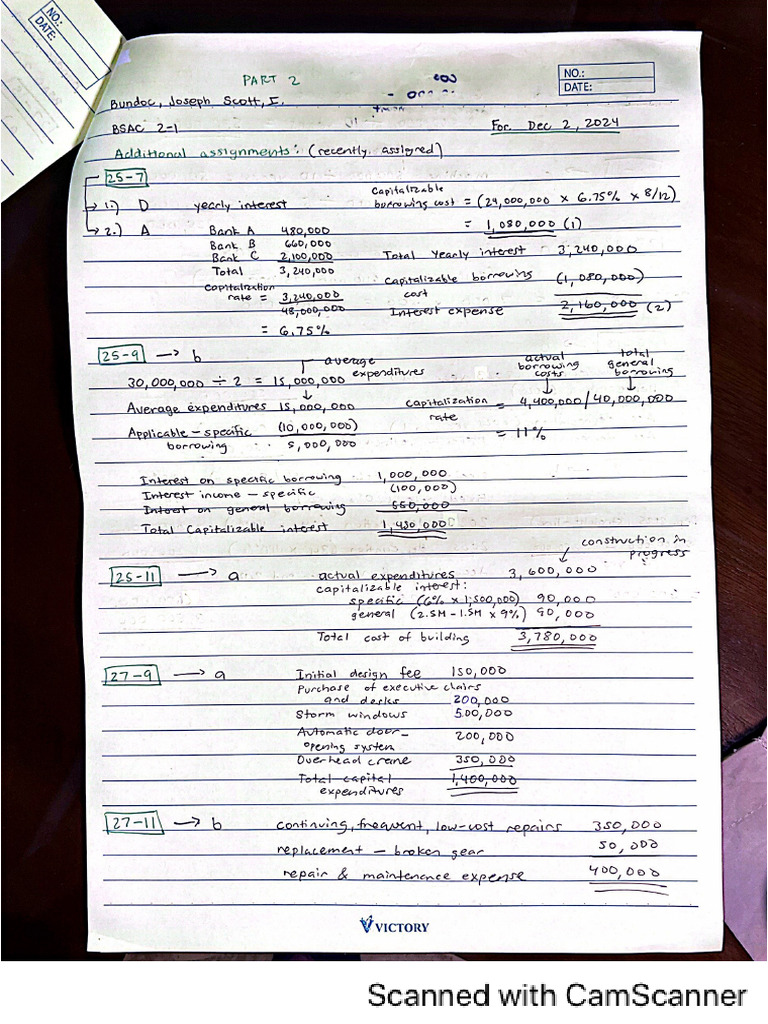 NO.:
DATE:
PART 2
NO.:
DATE:
Bundoc, Joseph Scott, I.
BSAC 2-1
For Dec 2, 2024
Additional assignments: (recently assigned)
25-7
1.) D yearly interest
Capitalizable
borrowing cost = (24,000,000 x 6.75% x 8/12)
= 1,080,000 (1)
2.) A Bank A 480,000
Bank B 660,000
Bank C 2,100,000
Total 3,240,000
Capitalization
rate = 3,240,000
48,000,000
= 6.75%
Total yearly interest 3,240,000
Capitalizable borrowing (1,080,000)
cost
Interest expense 2,160,000 (2)
25-9 → b
average
expenditures
30,000,000 ÷ 2 = 15,000,000
Average expenditures 15,000,000
Applicable - specific (10,000,000)
borrowing 5,000,000
actual
borrowing
costs
total
general
borrowing
Capitalization = 4,400,000 / 40,000,000
rate
= 11%
Interest on specific borrowing 1,000,000
Interest income - specific (100,000)
Interest on general borrowing 550,000
Total Capitalizable interest 1,450,000
construction in
progress
25-11 → a actual expenditures 3,600,000
capitalizable interest:
specific (6% x 1,500,000) 90,000
general (2.5M - 1.5M x 9%) 90,000
Total cost of building 3,780,000
27-9 → a Initial design fee 150,000
Purchase of executive chairs
and desks 200,000
Storm windows 500,000
Automatic door-
opening system 200,000
Overhead crane 350,000
Total capital 1,400,000
expenditures
27-11 → b continuing, frequent, low-cost repairs 350,000
replacement - broken gear 50,000
repair & maintenance expense 400,000
VICTORY
Scanned with CamScanner